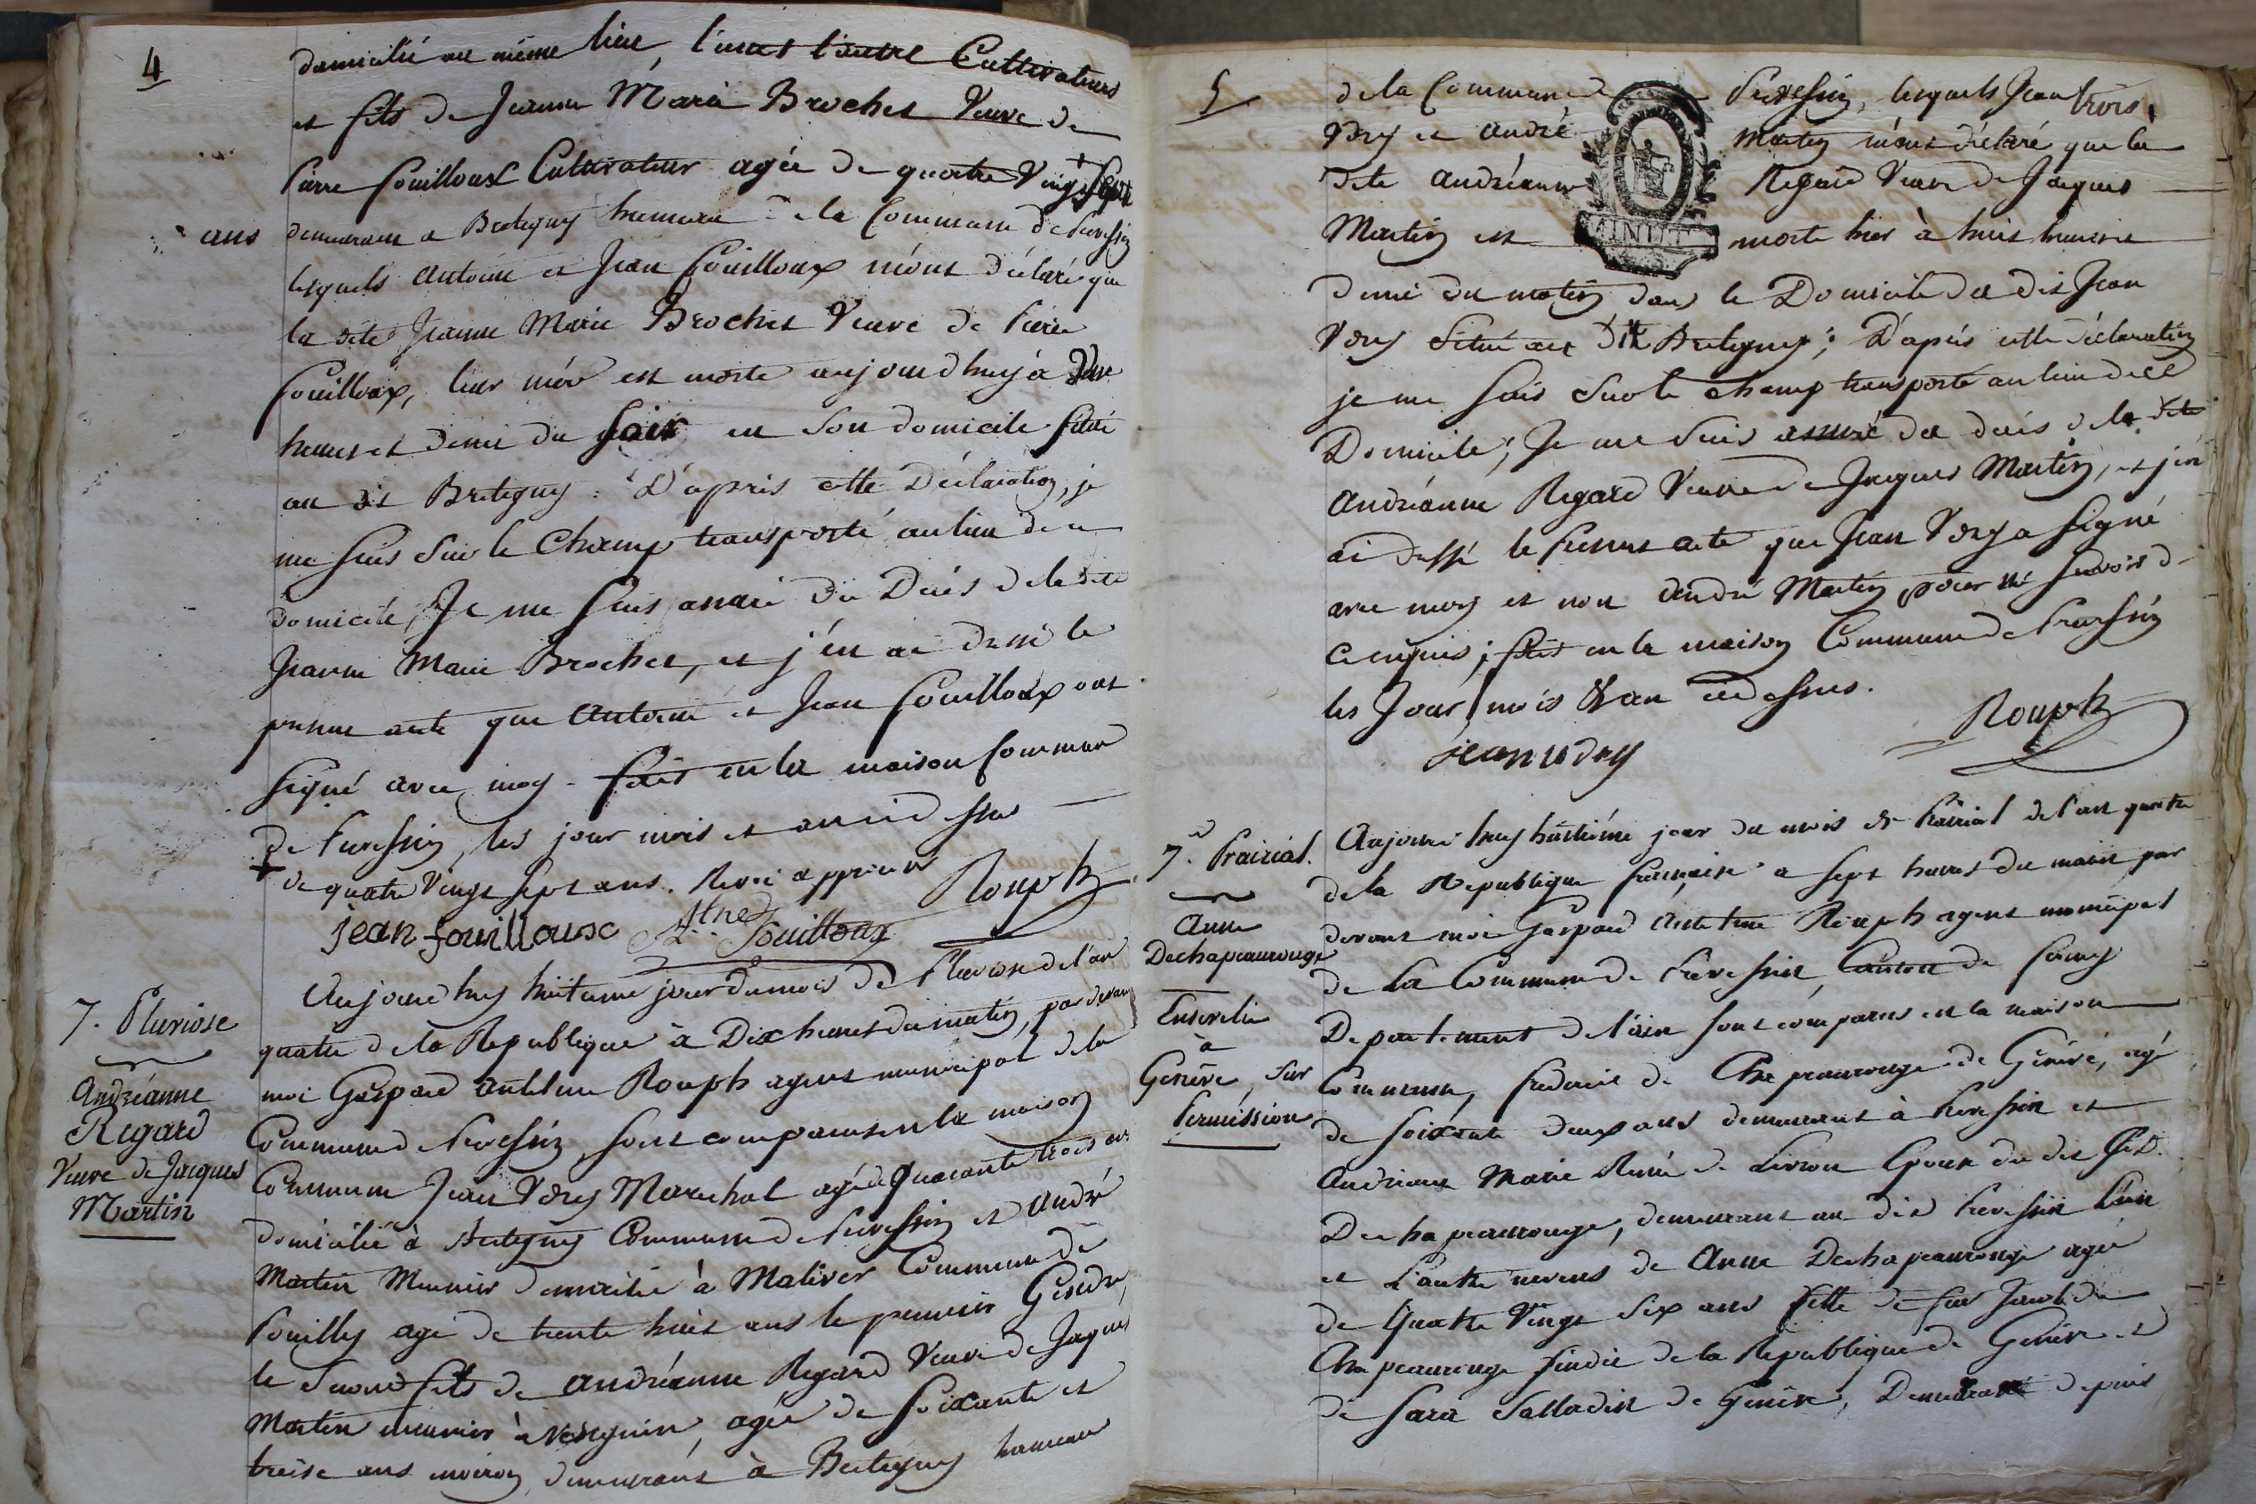 4
domicilié au même lieu, l'un et l'autre Cultivateurs
et fils de Jeanne Marie Brochet Veuve de
Pierre Fouilloux Cultivateur agée de quatre Vingt Sept +
ans demeurant a Bretigny hameau de la Commune de Prevessin
lesquels Antoine et Jean Fouilloux m'ont déclaré que
la dite Jeanne Marie Brochet Veuve de Pierre
Fouilloux, leur mère est morte aujourdhuy à
heures et demie du soir en son domicile situé
au dit Bretigny : D'après cette Déclaration, je
me suis sur le Champ transporté au lieu de ce
domicile, Je me suis assuré du Décès de la dite
Jeanne Marie Brochet, et j'en ai dressé le
présent acte que Antoine et Jean Fouilloux ont
signé avec moy - fait en la maison Commune
de Prevessin, les jour mois et an ci dessus
+ de quatre Vingt sept ans. Renvoi approuvé
Rouph
jean fouilloux Atne Fouilloux
7. Pluviose
Andréanne
Regard
Veuve de Jacques
Martin
Aujourd huy huitieme jour du mois de Pluviose de l'an
quatre de la Republique à Dix heures du matin, par devant
moi Gaspard Antelme Rouph agent municipal de la
Commune de Prevessin, sont comparus en la maison
Commune Jean Vdry Marechal agé de quarante trois ans
domicilié à Bretigny Commune de Prevessin et André
Martin Meunier domicilié à Mativer Commune de
Pouilly agé de trente huit ans le premier Gendre,
le second fils de Andréanne Regard Veuve de Jaques
Martin meunier à Vésegnin, agée de soixante et
treise ans environ, demeurant à Bretigny hameau
5
trois.
de la Commune de Prevessin, lesquels Jean
Vdry et André Martin m'ont déclaré que la
dite Andréanne Regard Veuve de Jacques
Martin est morte hier à huit heures et
MINUTE
demie du matin dans le Domicile du dit Jean
Vdry situé au dit Bretigny ; D'après cette déclaration
je me suis sur le champ transporté au lieu du dit
Domicile ; Je me suis assuré du décès de la dite
Andréanne Regard Veuve de Jacques Martin, et j'en
ai dressé le present acte que Jean Vdry a signé
avec moy et non André Martin pour ne savoir de
ce enquis ; fait en la maison Commune de Prevessin
les Jour, mois & an ci dessus.
Rouph
jean vdry
7. Prairial.
Anne
Dechapeaurouge
Ensevelie
à
Genève, sur
Permission
Aujourd huy huitième jour du mois de Prairial de l'an quatre
de la Republique française a sept heures du matin par
devant moi Gaspard Antelme Rouph agent municipal
de La Commune de Prevessin, Canton de
Departement de l'ain sont comparus en la maison
Commune, frederic de Chapeaurouge de Genéve, agé
de soixante deux ans demeurant à Prevessin et
Andrienne Marie Renée de Livron Epouse du dit fred.
Dechapeaurouge, demeurant au dit Prevessin L'un
et L'autre neveus de Anne Dechapeaurouge agée
de Quatre Vingt Six ans fille de feu Jacob de
Chapeaurouge sindic de la Republique de Genève et
de Sara Salladin de Genève, Demeurant depuis